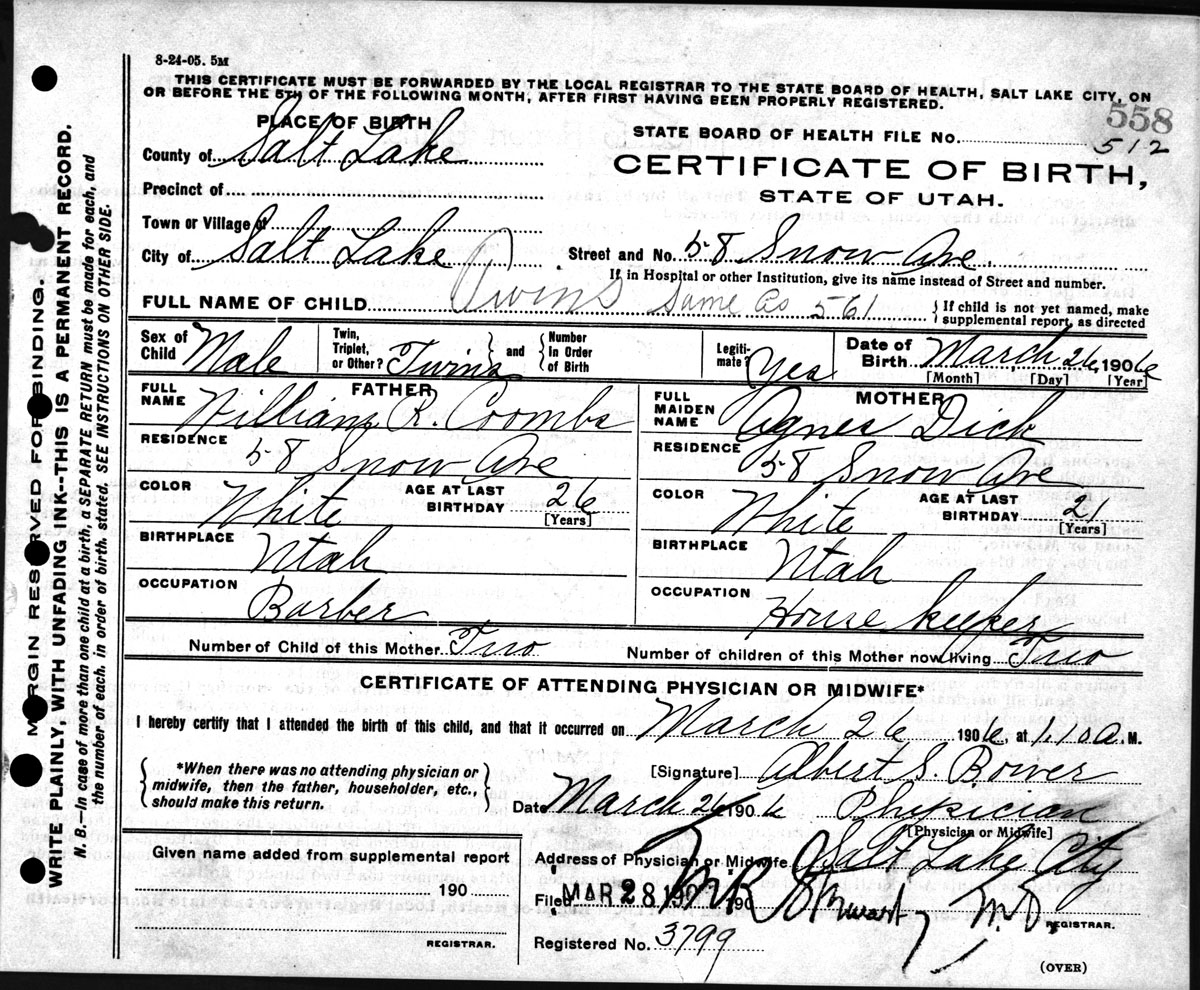 8-24-05. 5M
THIS CERTIFICATE MUST BE FORWARDED BY THE LOCAL REGISTRAR TO THE STATE BOARD OF HEALTH, SALT LAKE CITY, ON
OR BEFORE THE 5TH OF THE FOLLOWING MONTH, AFTER FIRST HAVING BEEN PROPERLY REGISTERED.
558
PLACE OF BIRTH
STATE BOARD OF HEALTH FILE No. 512
County of Salt Lake
CERTIFICATE OF BIRTH,
Precinct of
STATE OF UTAH.
Town or Village of
City of Salt Lake
Street and No. 58 Snow Ave.
If in Hospital or other Institution, give its name instead of Street and number.
FULL NAME OF CHILD Twins Same As 561
{ If child is not yet named, make
supplemental report, as directed
Sex of Child Male
Twin, Triplet, or Other? Twins } and { Number In Order of Birth
Legiti-mate? Yes
Date of Birth March 26 1906
[Month] [Day] [Year]
FATHER
FULL NAME William R. Coombs
RESIDENCE 58 Snow Ave
COLOR White
AGE AT LAST BIRTHDAY 26
[Years]
BIRTHPLACE Utah
OCCUPATION Barber
MOTHER
FULL MAIDEN NAME Agnes Dick
RESIDENCE 58 Snow Ave
COLOR White
AGE AT LAST BIRTHDAY 21
[Years]
BIRTHPLACE Utah
OCCUPATION House keeper
Number of Child of this Mother Two
Number of children of this Mother now living Two
CERTIFICATE OF ATTENDING PHYSICIAN OR MIDWIFE*
I hereby certify that I attended the birth of this child, and that it occurred on March 26 1906, at 1.10 A. M.
{ *When there was no attending physician or
midwife, then the father, householder, etc.,
should make this return. }
[Signature] Albert S. Bower
Date March 26 1906 Physician
[Physician or Midwife]
Given name added from supplemental report
190
REGISTRAR.
Address of Physician or Midwife Salt Lake City
Filed MAR 28 190 190 Stewart M.D.
REGISTRAR.
Registered No. 3799
(OVER)
MARGIN RESERVED FOR BINDING.
WRITE PLAINLY, WITH UNFADING INK--THIS IS A PERMANENT RECORD.
N. B.—In case of more than one child at a birth, a SEPARATE RETURN must be made for each, and
the number of each, in order of birth, stated. SEE INSTRUCTIONS ON OTHER SIDE.